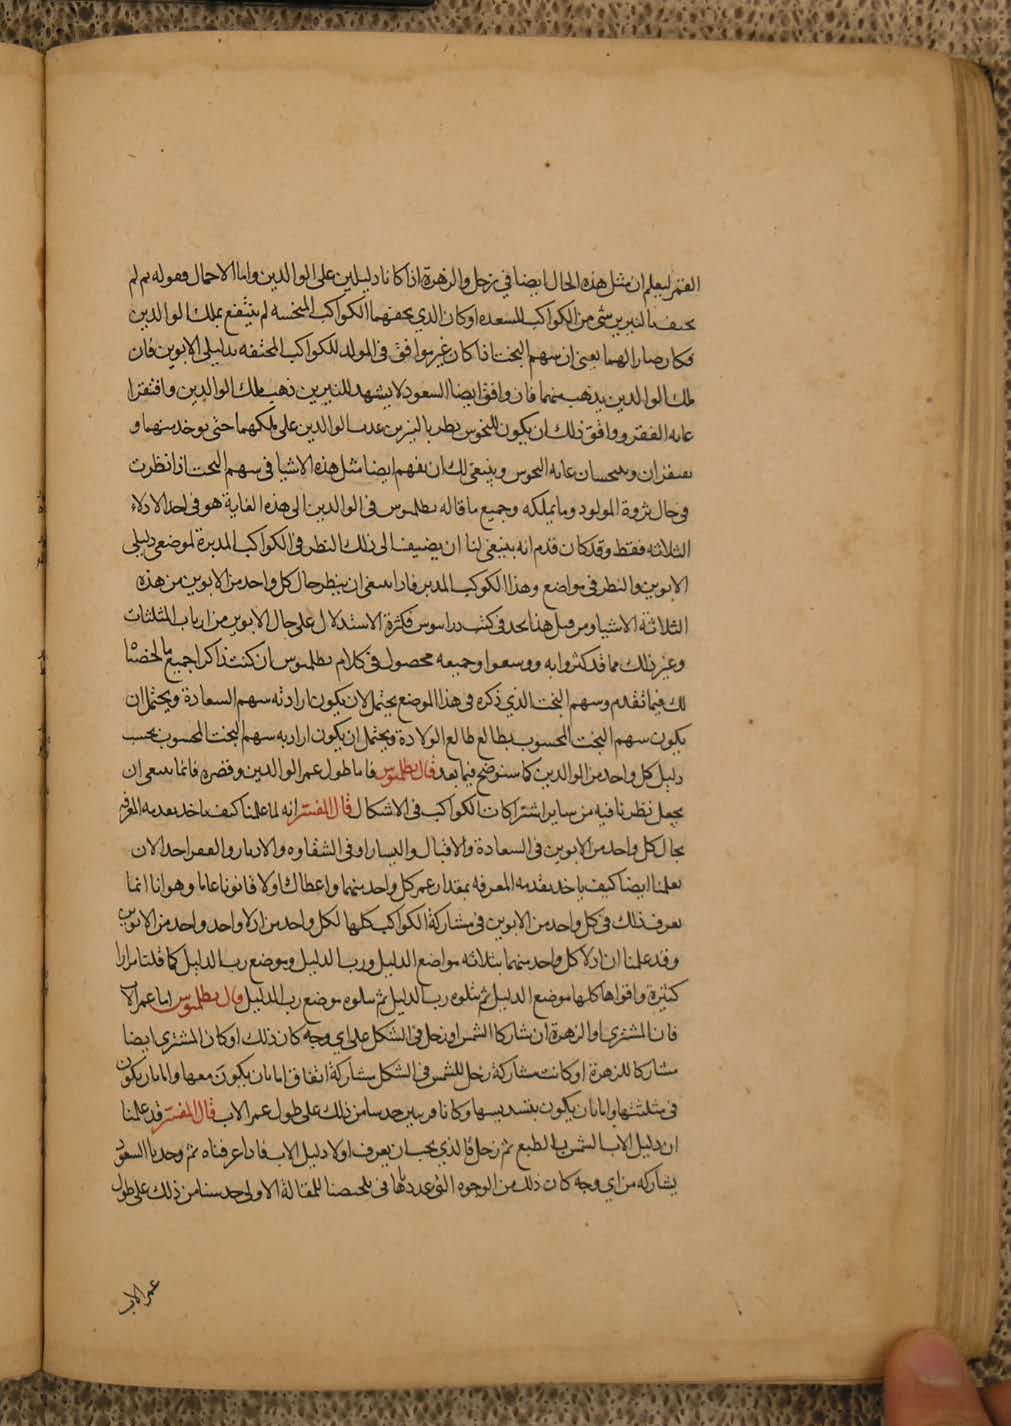 القمر ليعلم ان مثل هذه الحال ايضا في زحل والزهرة اذا كانا دليلين على الوالدين واما الاحمال فقوله ثم لم
يحتف بالنيرين شي من الكواكب المسعده او كان الذي يحفهما الكواكب المنحسه لم ينتفع بملك الوالدين
فكان صار الهما يعني ان سهم البخت اذا كان غير موافق في المولد للكواكب المحتفه بدليلي الابوين فان
ملك الوالدين يذهب منهما فان وافق ايضا السعود لا يشهد للنيرين ذهب ملك الوالدين وافتقرا
غايه الفقر ووافق ذلك ان يكون للنحوس نظر بالنيرين الوالدين على ملكهما حتى يوخذ منهما و
يفتقران وينحسان غايه النحوس وينبغي لك ان تفهم ايضا مثل هذه الاشيا في سهم البخت اذا نظرت
في حال ثروة المولود وما يملكه وجميع ما قاله بطلميوس في الوالدين الى هذه الغاية هو في احد الادلاء
الثلاثه فقط وقد كان قدم انه ينبغي لنا ان يضيف الى ذلك النظر في الكواكب المدبرة لموضعي دليلي
الابوين والنظر في مواضع وهذا الكوكب المدبر فاذا ينبغي ان ينظر حال كل واحد من الابوين من هذه
الثلاثة الاشيا ومن قبل هذا نجد في كتب دراسوس فكثرة الاستدلال على حال الابوين من ارباب المثلثات
وغير ذلك مما قد كثروا به ووسعوا وجميعه محصول في كلام بطلميوس ان كنت ذاكرا جميع ما لخصنا
لك فيما تقدم وسهم البخت الذي ذكره في هذا الموضع يحتمل لان يكون اراد به سهم السعادة ويحتمل ان
يكون سهم البخت المحسوب بطالع طالع الولادة ويحتمل ان يكون اراد به سهم البخت المحسوب بحسب
دليل كل واحد من الوالدين كما سنوضح فيما بعد قال بطلميوس فاما طول عمر الوالدين وقصره فانما ينبغي ان
يجعل نظرنا فيه من ساير اشتراكات الكواكب في الاشكال قال المفسر انه لما علمنا كيف ناخذ تقدمه المعرفه
بحال كل واحد من الابوين في السعادة والاقبال واليسار او في الشقاوه والادبار والفقر اخذ الان
يعلمنا ايضا كيف ناخذ تقدمه المعرفه بمقدار عمر كل واحد منهما واعطاك اولا قانونا عاما وهو انا انما
نعرف ذلك في كل واحد من الابوين في مشاركة الكواكب كلها لكل واحد من ادلا واحد واحد من الابوين
وقد علمنا ان ادلا كل واحد منهما بثلاثه مواضع الدليل ورب الدليل وموضع رب الدليل كما قلنا مرارا
كثيرة واقواها كلها موضع الدليل ثم يتلوه رب الدليل ثم يتلوه موضع رب الدليل قال بطلميوس اما عمر الاب
فان المشتري او الزهرة ان شاركا الشمس او زحل في الشكل على اي وجه كان ذلك او كان المشتري ايضا
مشاركا للزهرة او كانت مشاركة زحل للشمس في الشكل مشاركة اتفاق اما بان يكون معها واما بان يكون
في مثلثتها واما بان يكون بتسديسها وكانا قويين حدسنا من ذلك على طول عمر الاب قال المفسر قد علمنا
ان دليل الاب الشمس بالطبع ثم زحل فالذي يجب ان يعرف اولا دليل الاب فاذا عرفناه ثم وجدنا السعود
يشاركه من اي وجه كان ذلك من الوجوه التي عددناها في تلخيصنا للمقالة الاولى حدسنا من ذلك على طول
عمر الاب